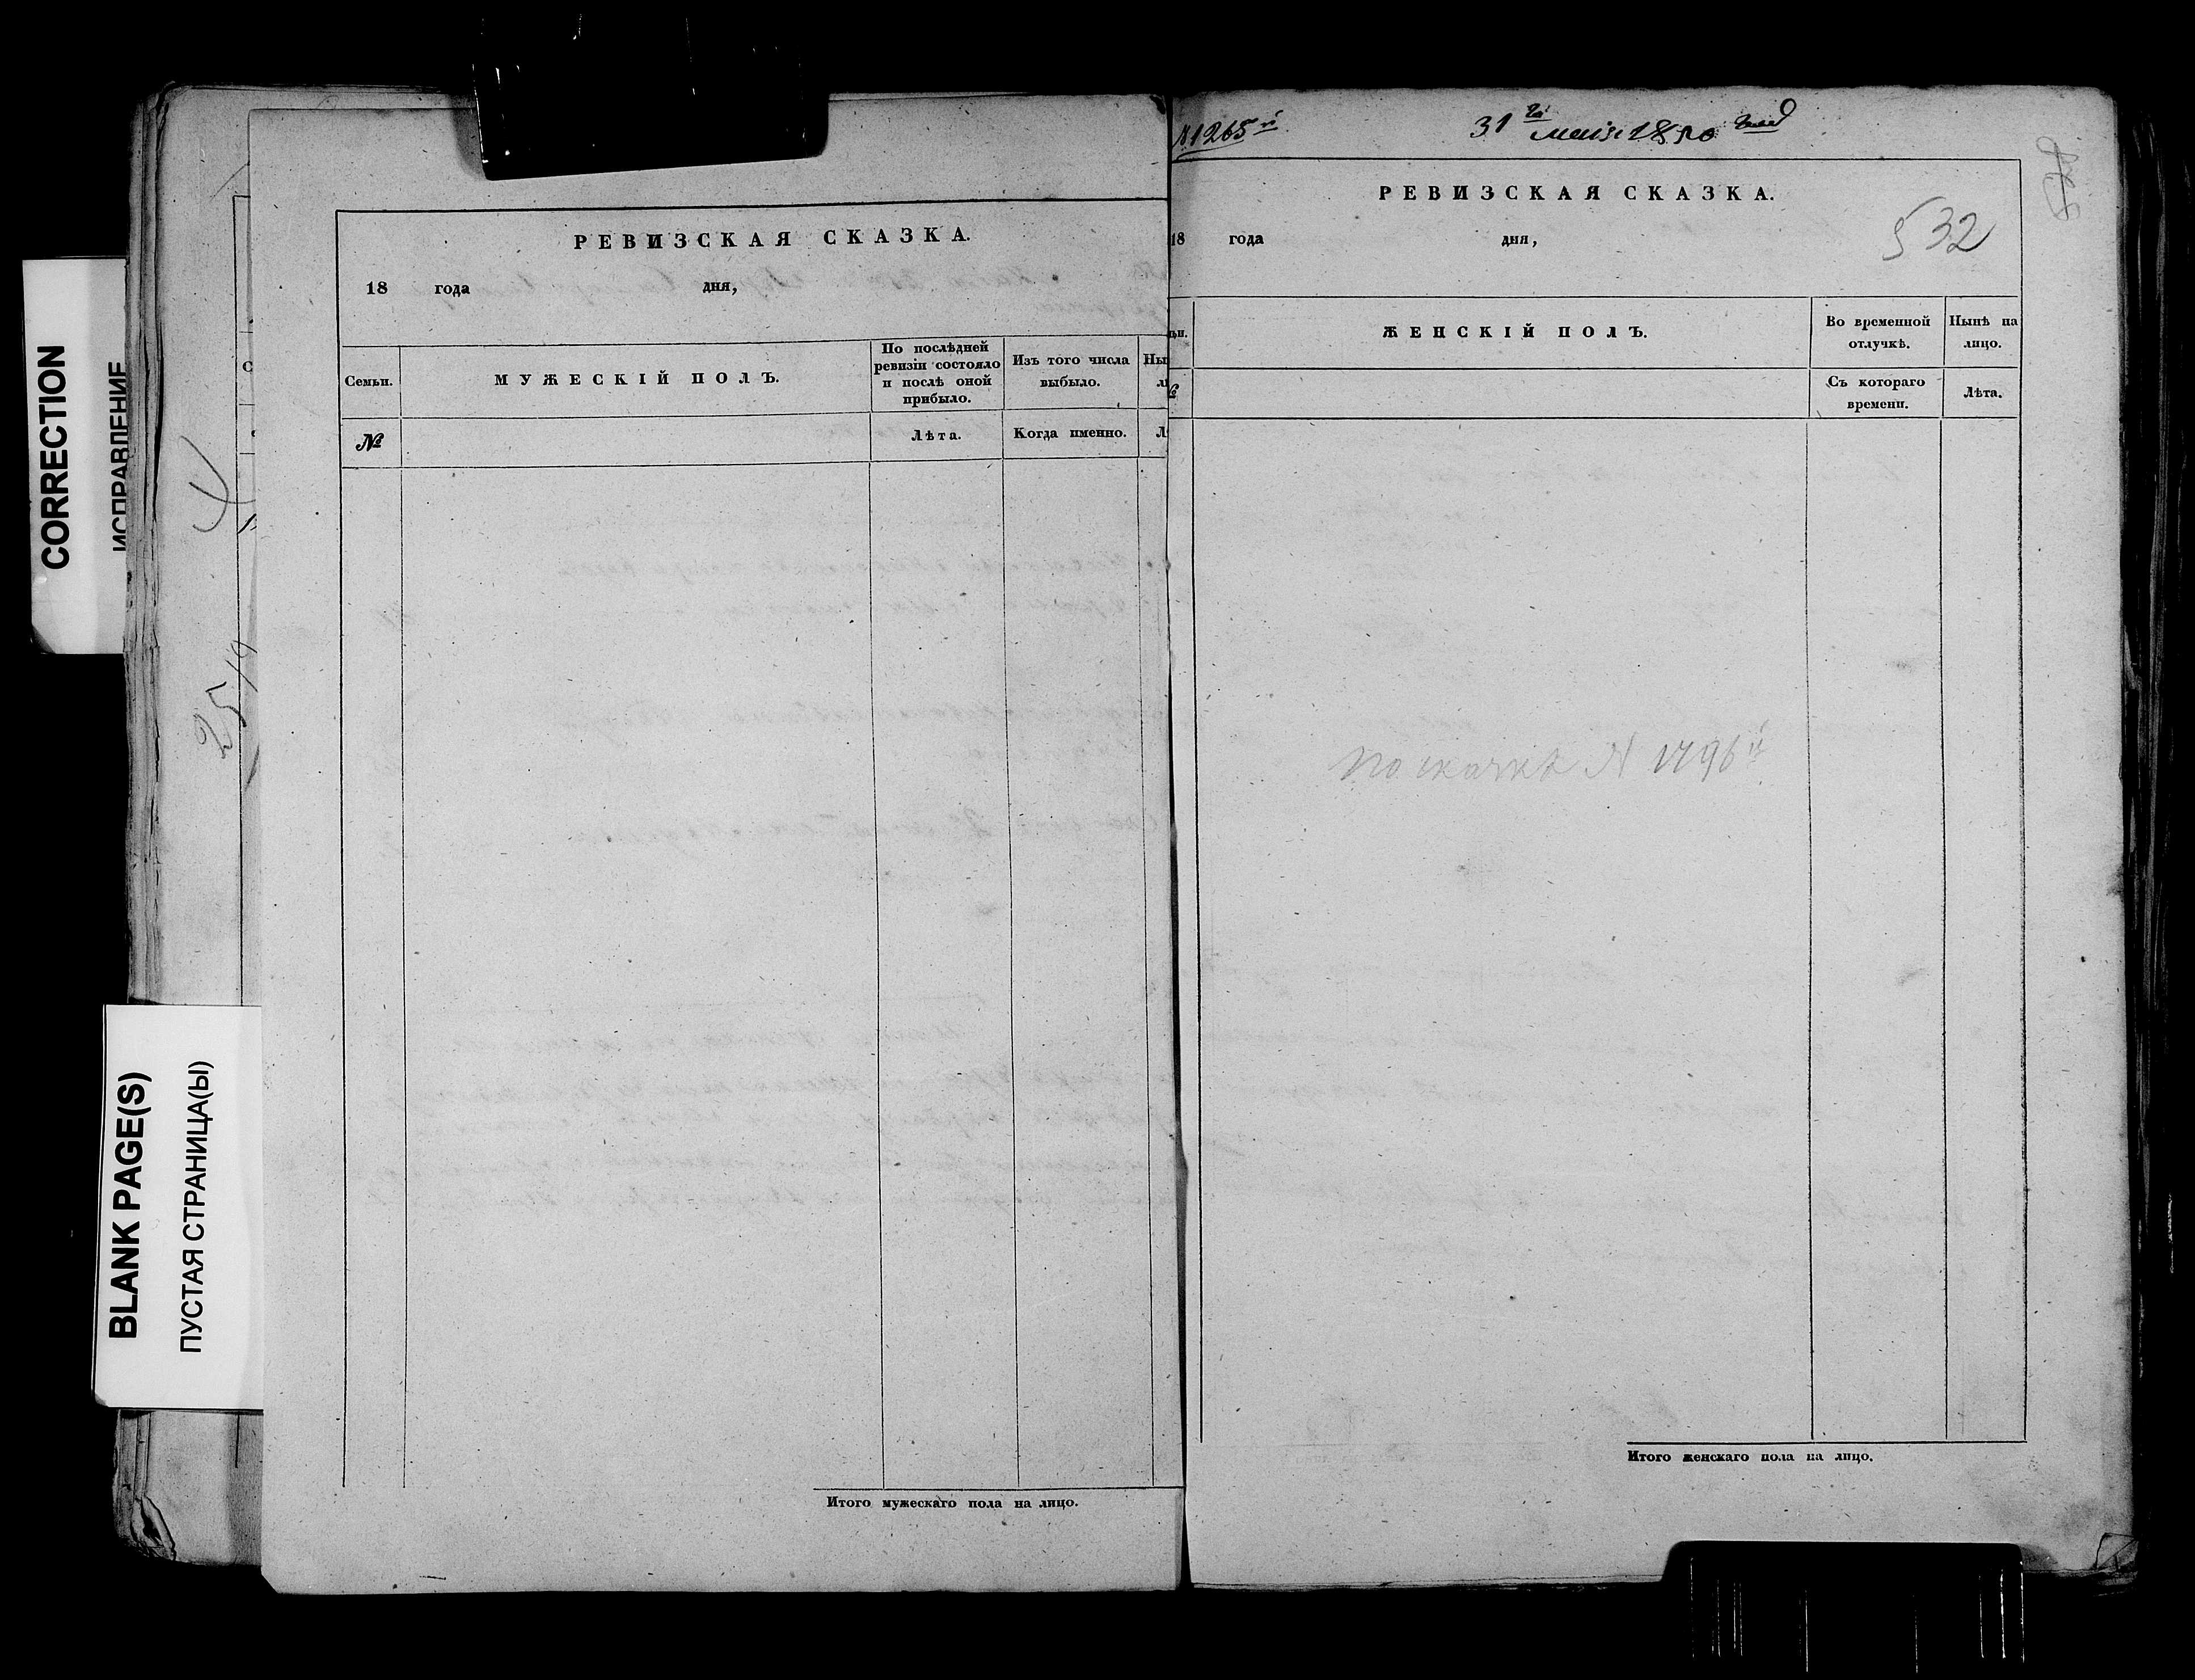 CORRECTION
ИСПРАВЛЕНИЕ
BLANK PAGE(S)
ПУСТАЯ СТРАНИЦА(Ы)
РЕВИЗСКАЯ СКАЗКА.
18 года дня,
Семьи.
МУЖЕСКІЙ ПОЛЪ.
По послѣдней
ревизіи состояло
и послѣ оной
прибыло.
Изъ того числа
выбыло.
№
Лѣта.
Когда именно.
Итого мужескаго пола на лицо.
№1265й
31го маія 1850 года
РЕВИЗСКАЯ СКАЗКА.
532
18 года дня,
ЖЕНСКІЙ ПОЛЪ.
Во временной
отлучкѣ.
Нынѣ на
лицо.
Съ котораго
времени.
Лѣта.
По сказкѣ N 1796й
Итого женскаго пола на лицо.